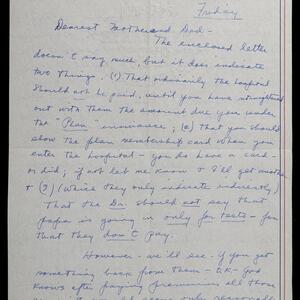 Friday
Dearest Mother and Dad -
The enclosed letter
doesn't say much, but it does indicate
two things. (1) That ordinarily the hospital
should not be paid, until you have straightened
out with them the amount due you under
the "Plan" insurance; (2) That you should
show the plan membership card when you
enter the hospital - you do have a card -
or did; if not let me know & I'll get another
& (3) (Which they only indicate indirectly)
That the Dr. should not say that
papa is going in only for tests - for
that they don't pay.
However - we'll see. If you get
something back from them - O.K. - God
knows after paying premiums all those